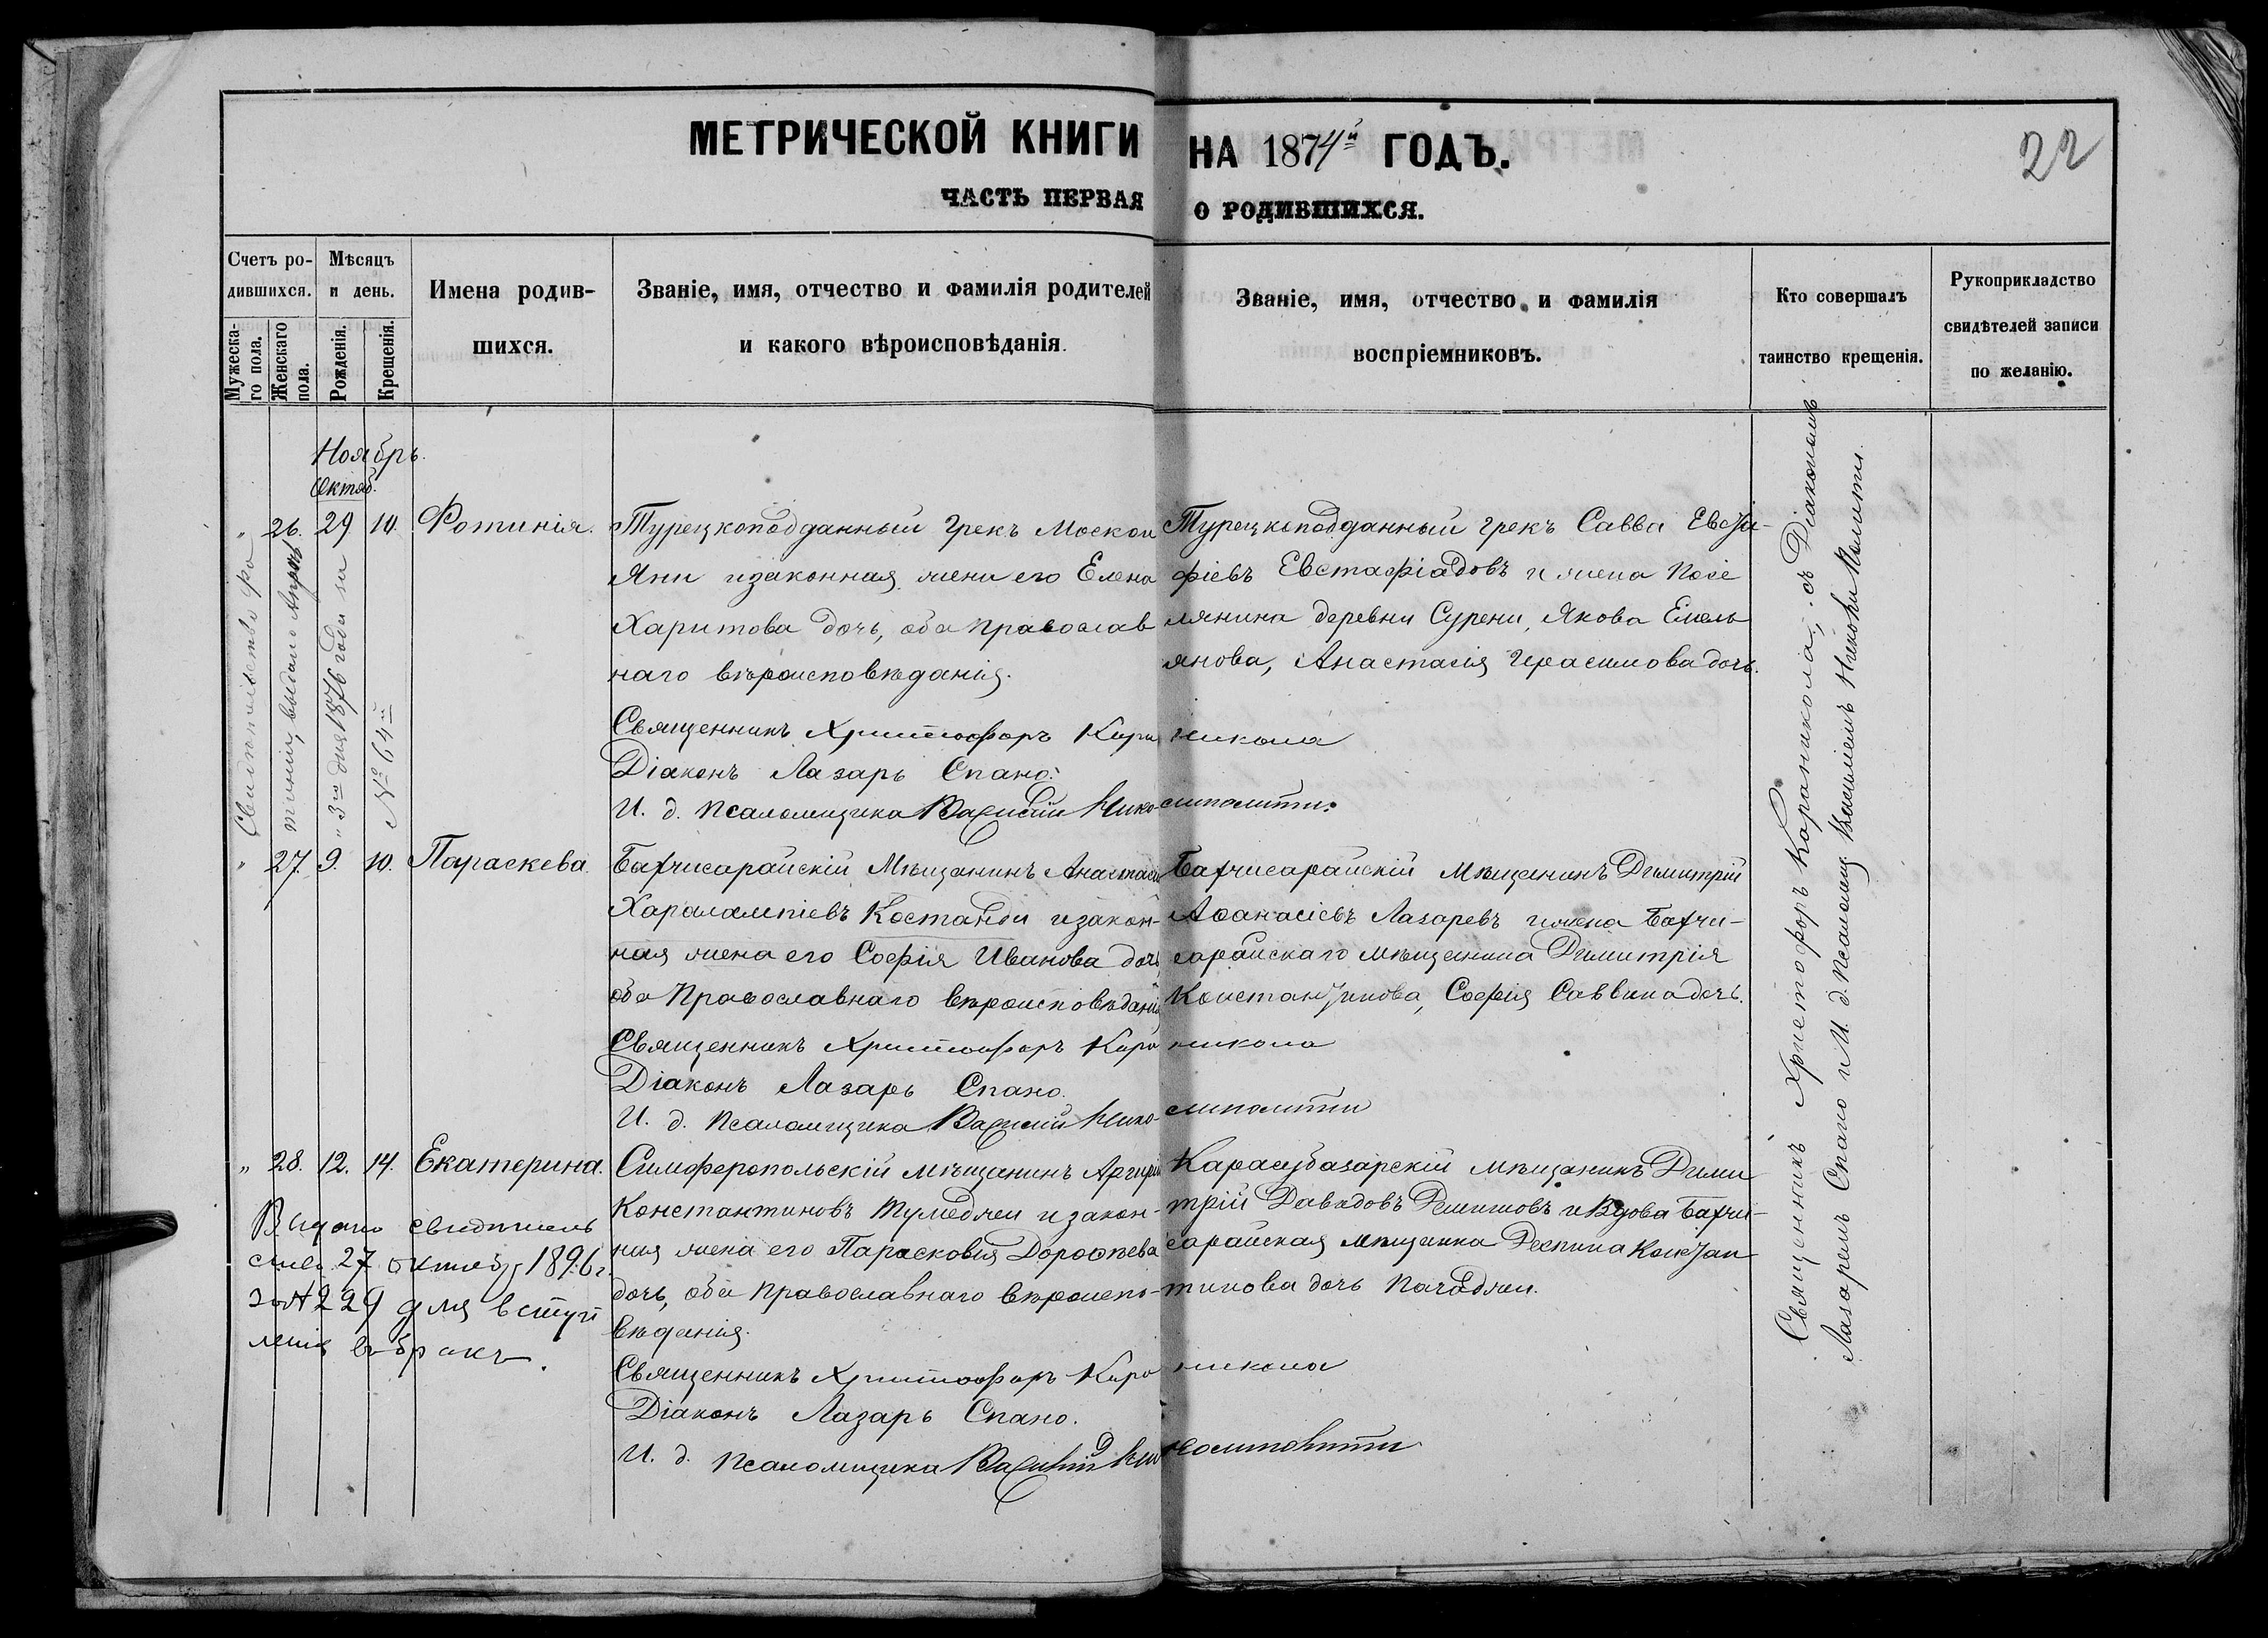 МЕТРИЧЕСКОЙ КНИГИ НА 1874й ГОДЪ.
22
ЧАСТЬ ПЕРВАЯ О РОДИВШИХСЯ.
Счетъ ро-
дившихся.
Мужеска-
го пола.
Женскаго
пола.
Мѣсяцъ
и день.
Рожденія.
Крещенія.
Имена родив-
шихся.
Званіе, имя, отчество и фамилія родителей
и какого вѣроисповѣданія.
Званіе, имя, отчество и фамилія
воспріемниковъ.
Кто совершалъ
таинство крещенія.
Рукоприкладство
свидѣтелей записи
по желанію.
Ноябрь.
Октяб.
" 26. 29 10. Фотинія.
Турецкоподданный грекъ
Яни и законная жена его Елена
Харитова дочь, оба православ
наго вѣроисповѣданія.
Священникъ Христофоръ Кара никола
Діаконъ Лазарь Спано.
И. д. Псаломщика Василій
Турецкоподданный грекъ Савва Евста-
фіевъ Евстафіадовъ и жена посе
лянина деревни Сурени, Якова Емель
янова, Анастасія Герасимова дочь.
Свидѣтельство фо
тиніи, выдано Апрѣля
"3го дня 1876 года за
№ 64й
" 27. 9. 10. Параскева.
Бахчисарайскій Мѣщанинъ Анастасій
Харалампіевъ Костанди и закон-
ная жена его Софія Иванова дочь,
оба Православнаго вѣроисповѣданія
Священникъ Христофоръ Кара никола
Діаконъ Лазарь Спано.
И. д. Псаломщика Василій
Бахчисарайскій Мѣщанинъ Димитрій
Аѳанасіевъ Лазаревъ и жена Бахчи-
сарайскаго мѣщанина Димитрія
Константинова, Софія Саввина дочь.
" 28. 12. 14. Екатерина.
Симферопольскій мѣщанинъ Аргирій
Константиновъ и закон-
ная жена его Парасковія Дороѳѣева
дочь, оба православнаго вѣроиспо-
вѣданія.
Священникъ Христофоръ Кара никола
Діаконъ Лазарь Спано.
И. д. Псаломщика Василій
Карасубазарскій мѣщанинъ Дими
трій Давидовъ и Вдова Бахчи-
сарайская мѣщанка Деспина Констан
тинова дочь
Выдано свидѣтель
ство 27 октября 1896 г.
за № 229 для вступ
ленія въ бракъ.
Священникъ Христофоръ Караникола, съ Діакономъ
Лазаремъ Спано и И. д. псаломщ. Василіемъ